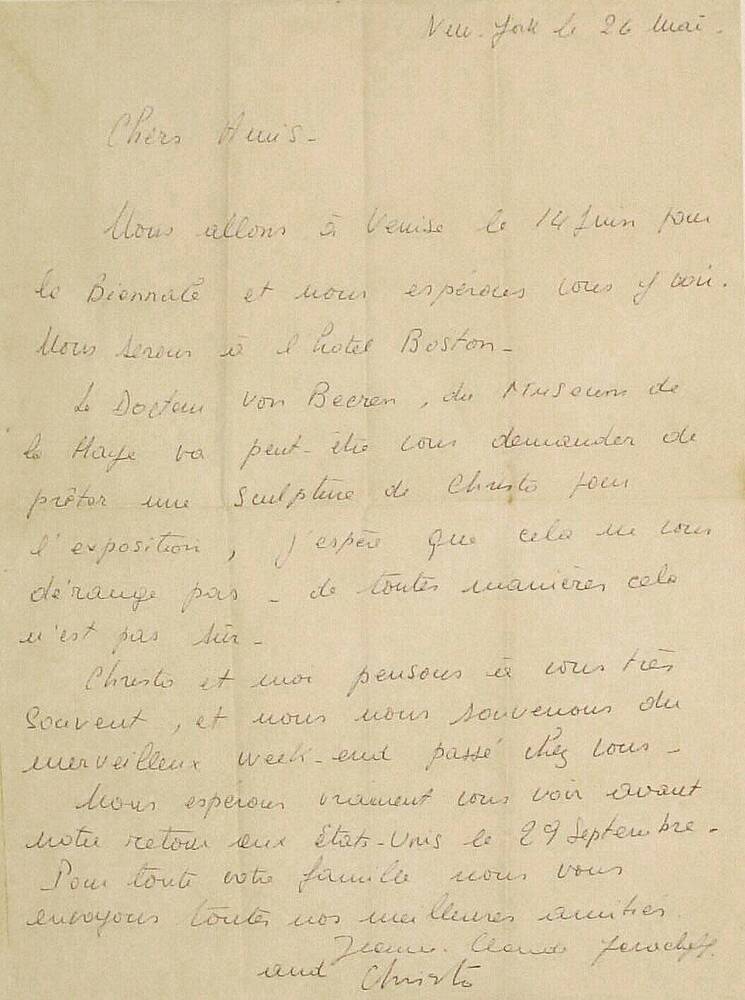 New-York le 26 Mai.
Chers Amis -
Nous allons à Venise le 14 Juin pour
la Biennale et nous espérons vous y voir.
Nous serons à l'hotel Boston -
Le Docteur von Beeren, du Museum de
la Haye va peut-être vous demander de
prêter une sculpture de Christo pour
l'exposition, j'espère que cela ne vous
dérange pas - de toutes manières cela
n'est pas sûr -
Christo et moi pensons à vous très
souvent, et nous nous souvenons du
merveilleux week-end passé chez vous -
Nous espérons vraiment vous voir avant
notre retour aux États-Unis le 29 Septembre -
Pour toute votre famille nous vous
envoyons toutes nos meilleures amitiés.
Jeanne-Claude Javacheff
and Christo